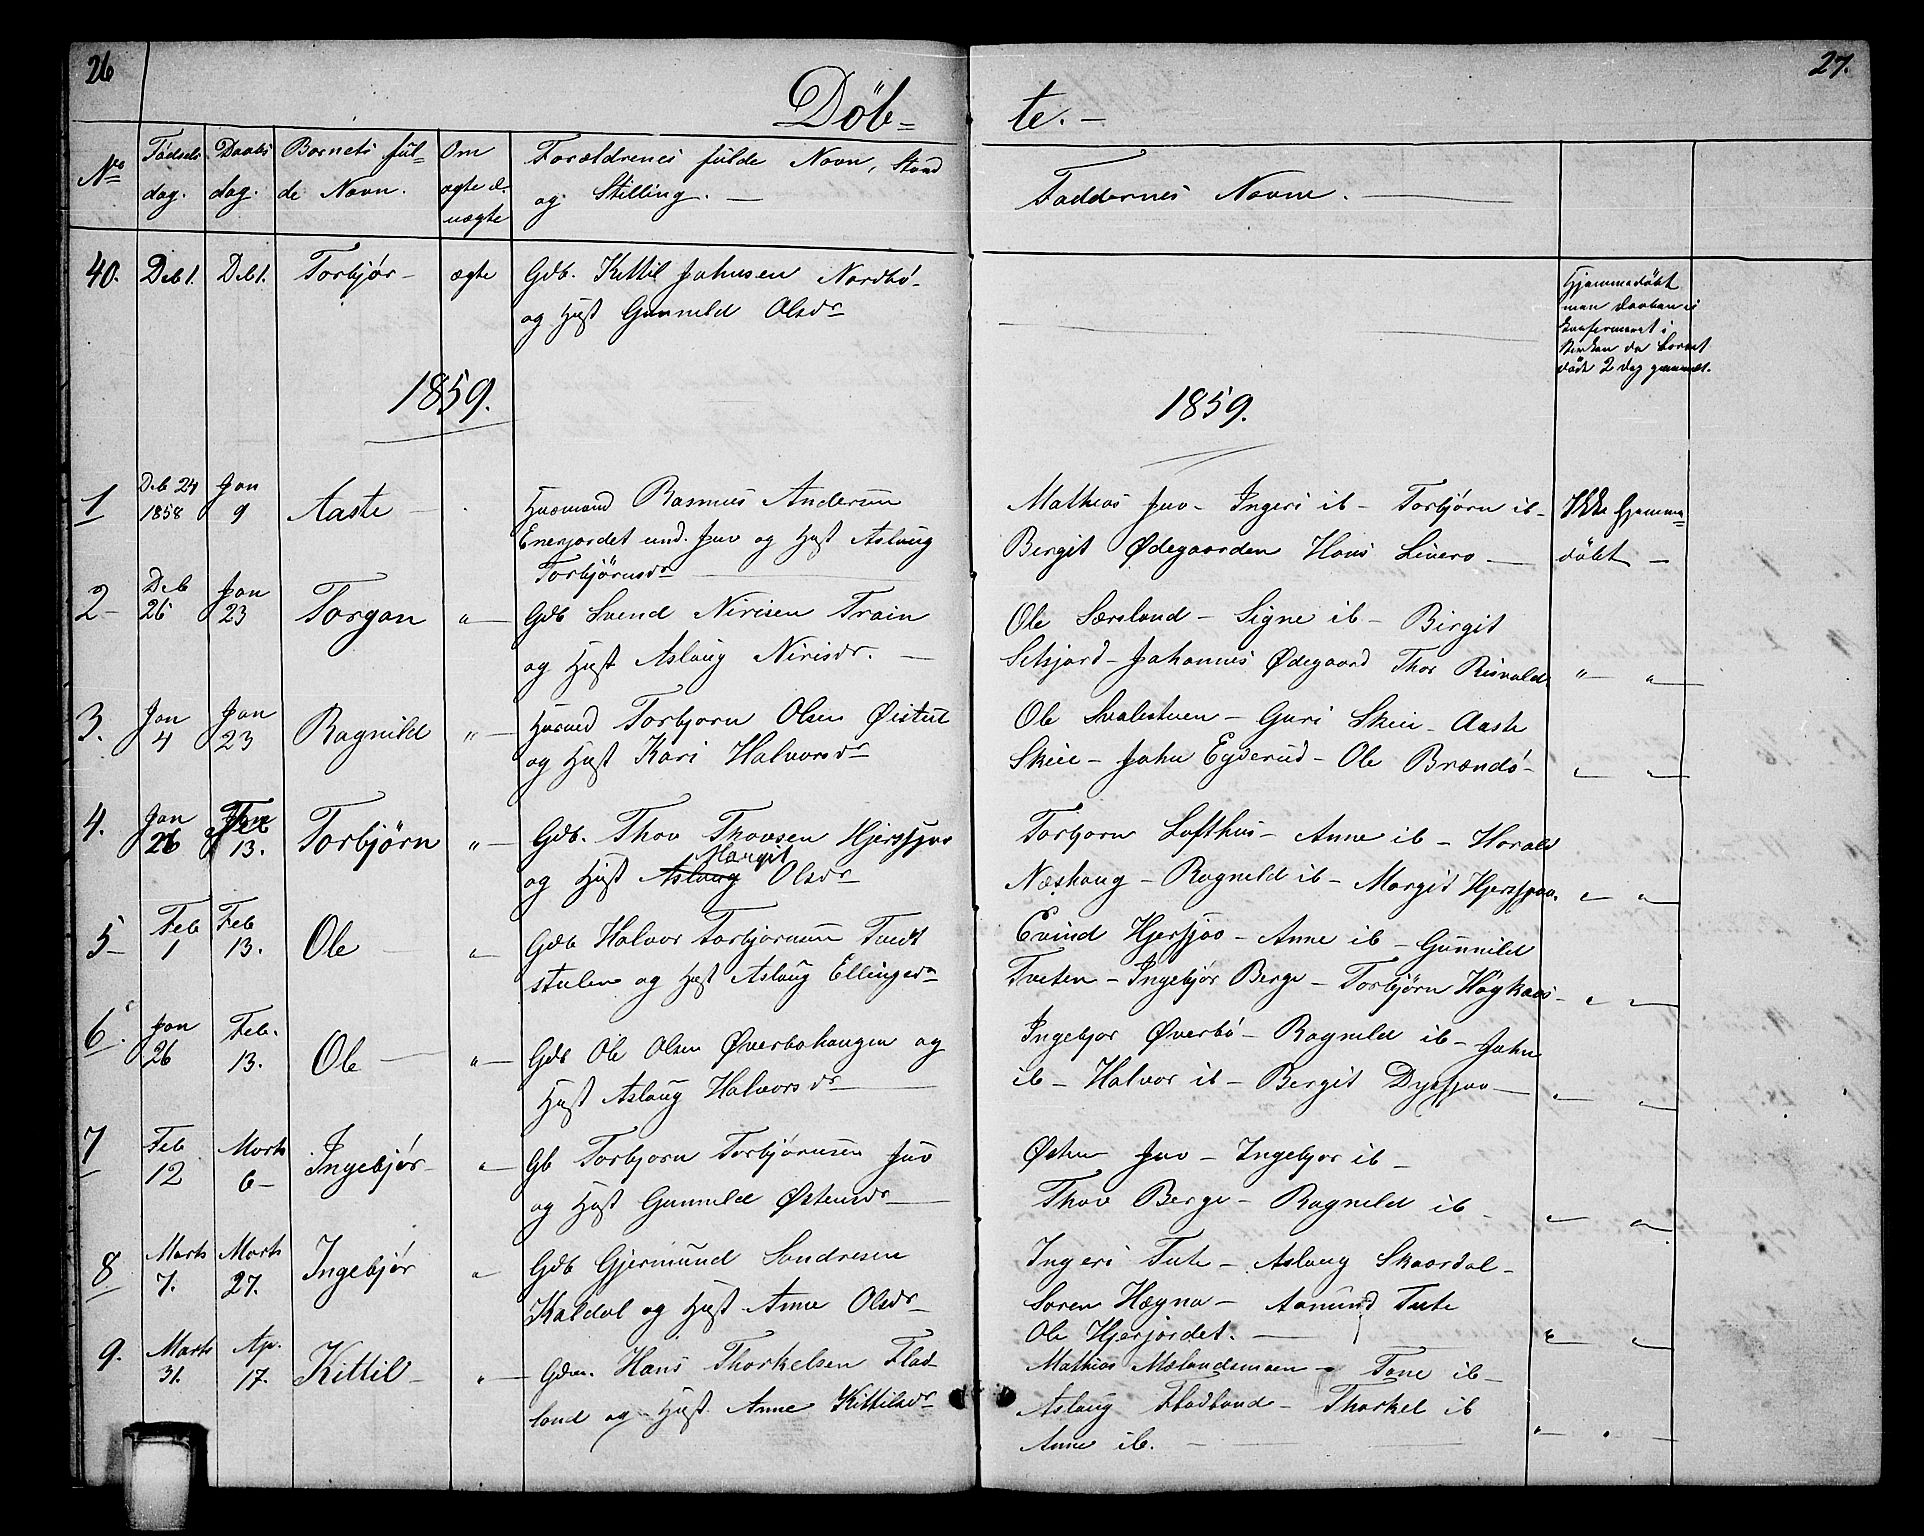 26
27.
Döb- te. -
No Fødsels dag. Daabs dag. Barnets fulde Navn. Om ægte el. uægte Forældrenes fulde Navn, Stand og Stilling. — Faddernes Navne. —
40. Deb 1. Deb 1. Torbjør- ægte Gdb. Kittil Johnsen Nordbö-
og Hust Gunnild Olsdr
Hjemmedöbt
men Daaben ei
konfirmeret i
Kirken da barnet
döde 2 Dag gammelt.
1859. 1859.
1 Deb 24 1858 Jan 9 Aaste - Husmand Rasmus Andersen
Enerjordet und. Juv og Hust Aslaug
Torbjörnsdr
Mathias Juv - Ingeri ib - Torbjørn ib -
Bergit Ødegaarden Hans Livero —
Ikke hjemme-
döbt —
2- Deb 26 Jan 23 Torgon " Gdb Svend Nirisen Train
og Hust Aslaug Nirisdr. —
Ole Særsland - Signe ib - Birgit
Selsjord - Johannes Ødegaard Thor Risvald " "
3. Jan 4 Jan 23 Ragnild " Husmd Torbjorn Olsen Øistul
og Hust Kari Halvorsdr
Ole Svalestuen - Guri Skeie - Aaste
Skeie - John Egderud - Ole Brændö - " "
4. Jan 26 Feb 13. Torbjørn " Gdb. Thov Thovsen Hjersjøo
og Hust Aslaug Margit Olsdr
Torbjorn Lofthus - Anne ib - Harald
Næshaug - Ragnild ib - Margit Hjersjøo. " "
5- Feb 1 Feb 13. Ole " Gdb Halvor Torbjørnsen Tvedt
stulen og Hust Aslaug Ellingsdr
Evind Hjersjöo - Anne ib - Gunnild
Tveten - Ingebjör Berge - Torbjörn Høgkaas - " "
6. Jan 26 Feb. 13. Ole " Gdb Ole Olsen Øverbøhaugen og
Hust Aslaug Halvorsdr
Ingebjor Øverbö - Ragnild ib - John
ib - Halvor ib - Bergit Dyrsjoo — " "
7 Feb 12 Marts 6- Ingebjør- " Gb Torbjorn Torbjörnsen Juv
og Hust Gunnild Østensdr —
Østen Juv - Ingebjor ib -
Thov Berge - Ragnild ib - " "
8 Marts 7. Marts 27. Ingebjör " Gdb Gjermund Sondresen
Kaldal og Hust Anne Olsdr -
Ingeri Tute - Aslaug Skaardal -
Soren Hægna - Aamund Tute
Ole Hjerjordet. — " "
9. Marts 31. Ap. 17. Kittil - " Gdm. Hans Thorkelsen Flad-
land og Hust. Anne Kittilsdr
Mathias Mælandsmoen - Tone ib -
Aslaug Fladland - Thorkel ib
Anne ib. - " "